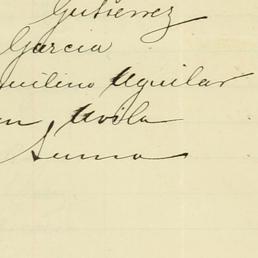 Gutierrez
Garcia
quilino Aguilar
n Avila
Serna